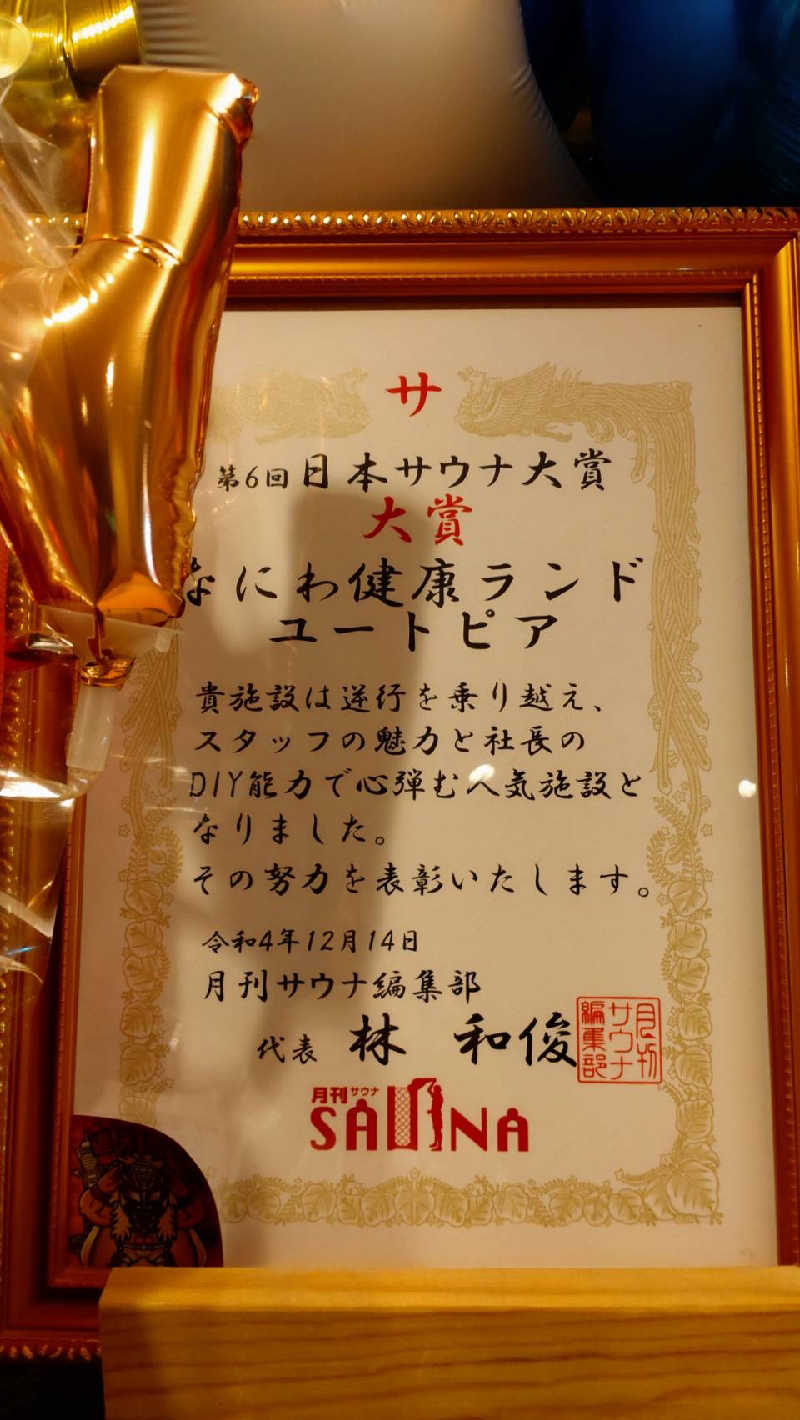 サ
第6回日本サウナ大賞
大賞
なにわ健康ランド
ユートピア
貴施設は逆行を乗り越え、
スタッフの魅力と社長の
DIY能力で心弾む人気施設と
なりました。
その努力を表彰いたします。
令和4年12月14日
月刊サウナ編集部
代表 林 和俊
月刊
サウナ
編集部
月刊サウナ
SAUNA